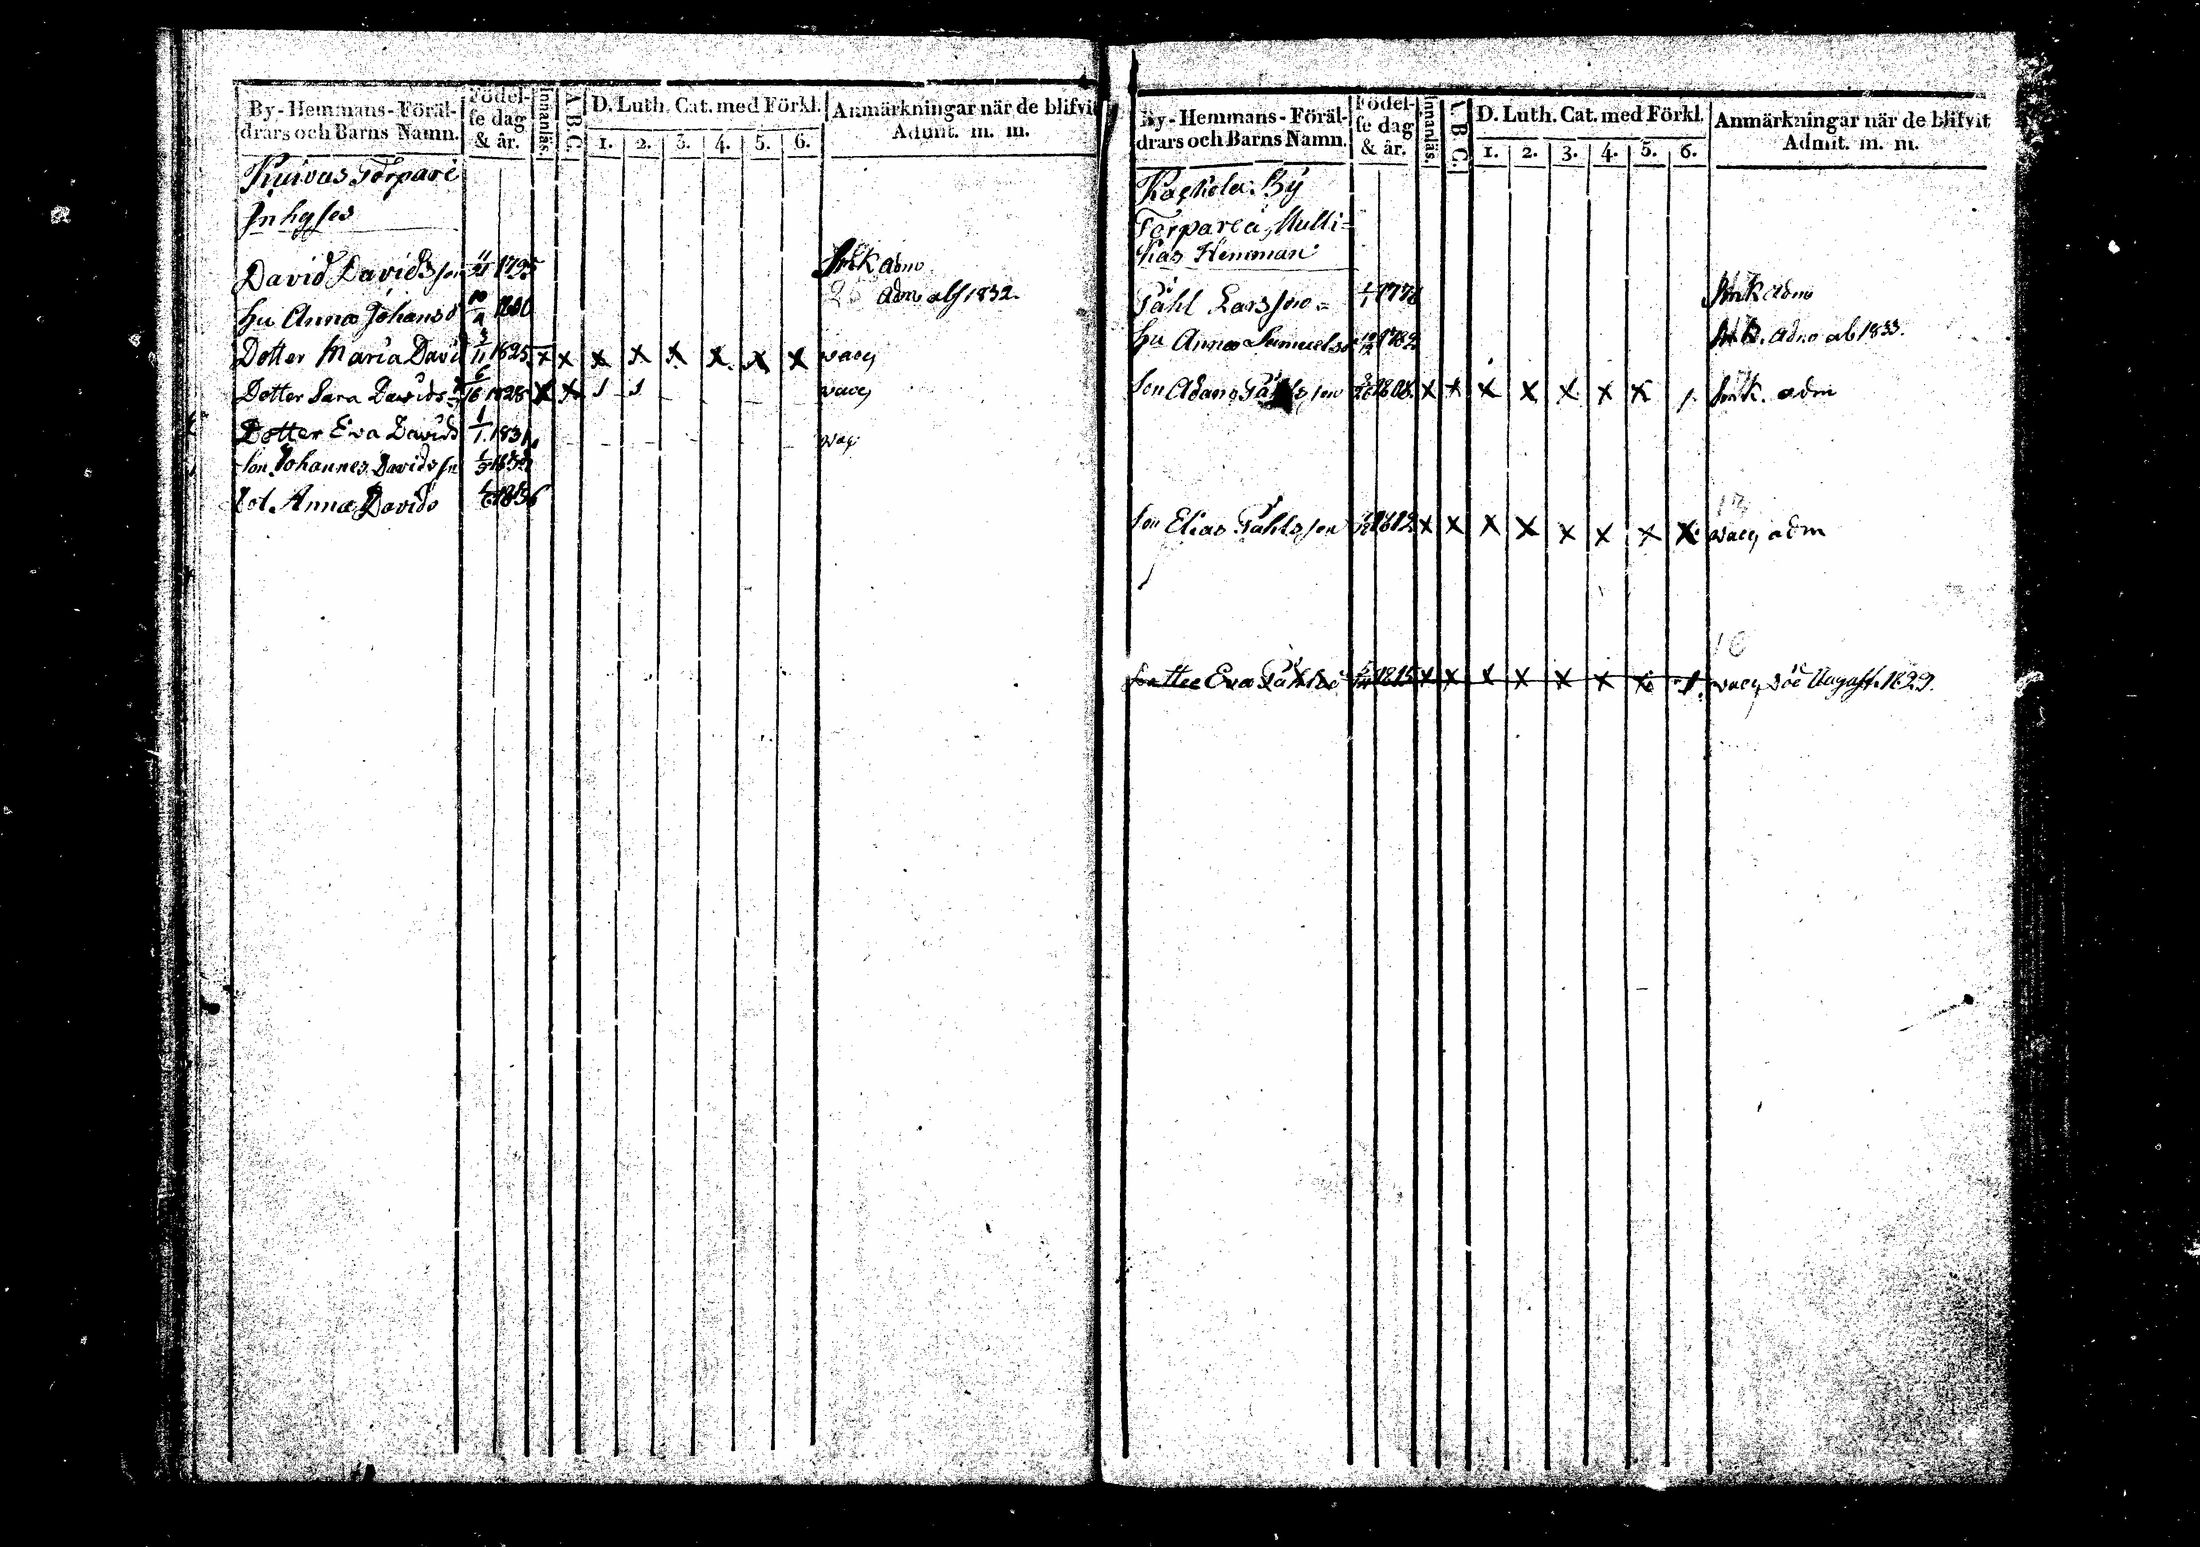 By-Hemmans-Föräl- Födel- Innanläs. A.B.C. D. Luth. Cat. med Förkl. Anmärkningar när de blifvit
drars och Barns Namn. se dag & år. 1. 2. 3. 4. 5. 6. Admit. m. m.
Kuivas Torpare
Inhyses
David Davidsson 1795 adm
Hu Anna Johansd 1800 adm abs 1832.
Dotter Maria Davi 3/11 1825 x x x x x x x x vacc
Dotter Sara Davids 6/16 1828 x x 1 1 vacc
Dotter Eva Davids 1/1 1831 vac
Son Johannes Davidsson
Dot. Anna Davids 1836
By-Hemmans-Föräl- Födel- Innanläs. A.B.C. D. Luth. Cat. med Förkl. Anmärkningar när de blifvit
drars och Barns Namn. se dag & år. 1. 2. 3. 4. 5. 6. Admit. m. m.
By
Torpare å
Hemman
Påhl Larsson adm
Hu Anna Samuelsd adm ab 1833.
Son Adam Påhlsson 1808 x x x x x x x / adm
Son Elias Påhlsson 1812 x x x x x x x x vacc adm
16
Dotter Eva Påhlsd 1815 x x x x x x x 1 vacc död August. 1829.